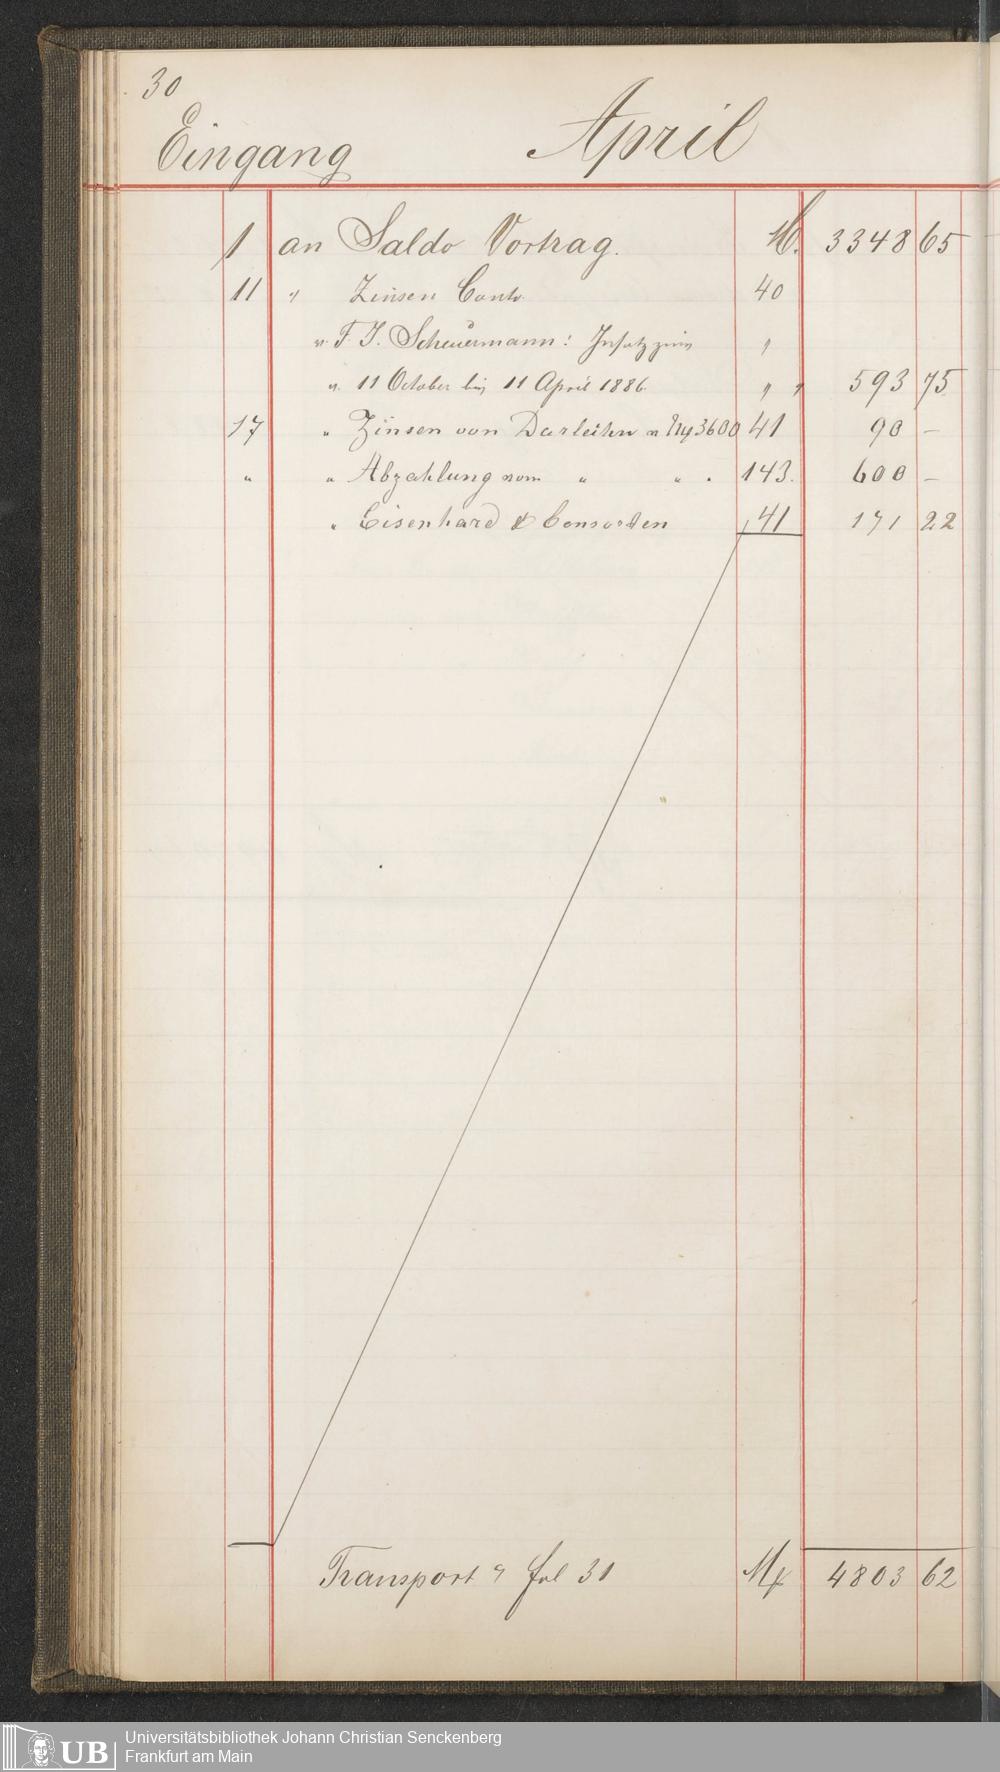 30
Eingang April
1 an Saldo Vortrag. M. 3348 65
11 " Zinsen Conto 40
v. F. J. Scheuermann: Insatzzins "
v. 11 October bis 11 April 1886. " " 593 75
17 " Zinsen von Darleihn a M 3600 41 90 –
" " Abzahlung vom " " . 143. 600 –
" Eisenhard & Consorten 41 171 22
Transport a fol 31 M 4803 62
UB
Universitätsbibliothek Johann Christian Senckenberg
Frankfurt am Main